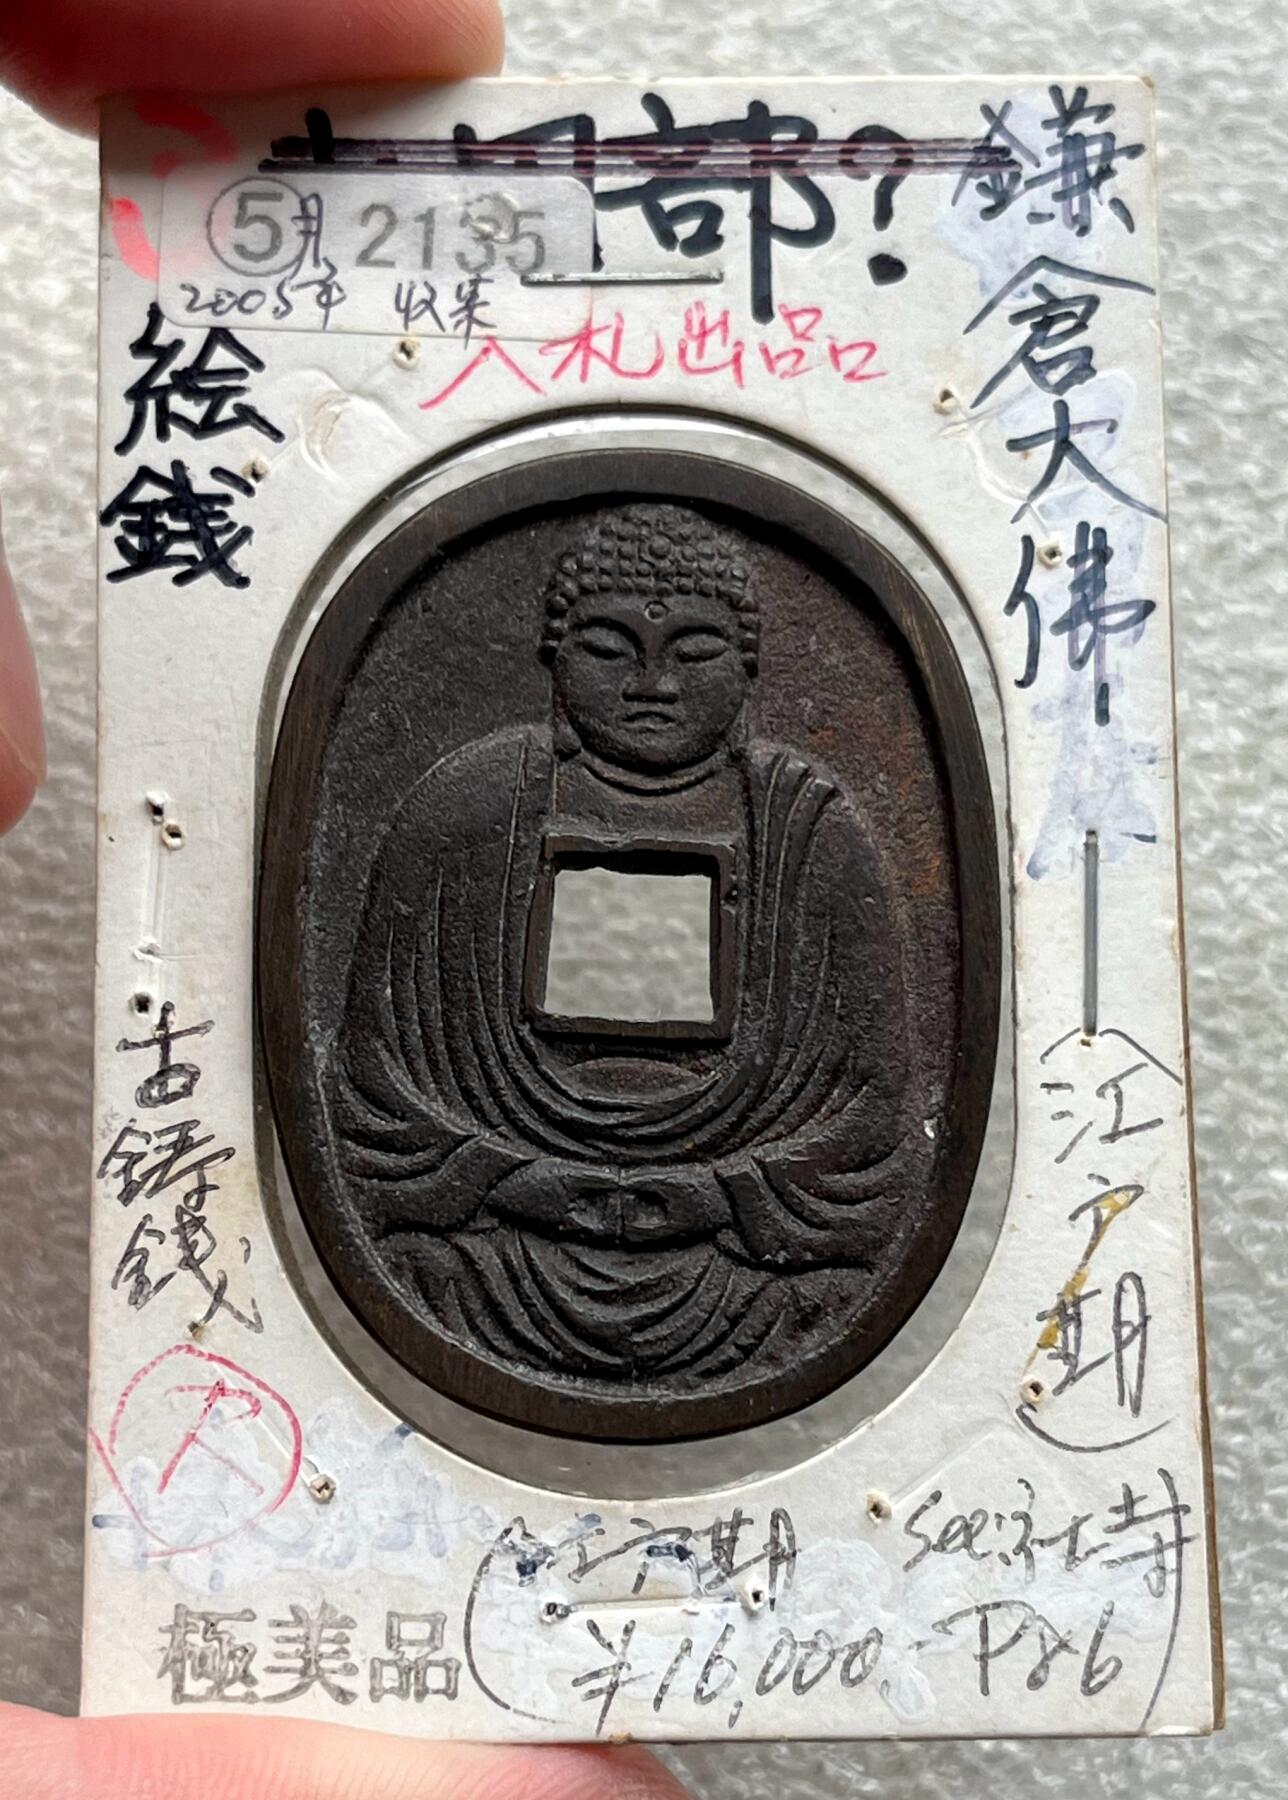 部?
⑤月 2135
2005年 收集
入札出品
鎌倉大佛
(江戸期)
絵銭
古鋳銭
極美品
(江戸期 see:社寺
¥16,000.- P86)